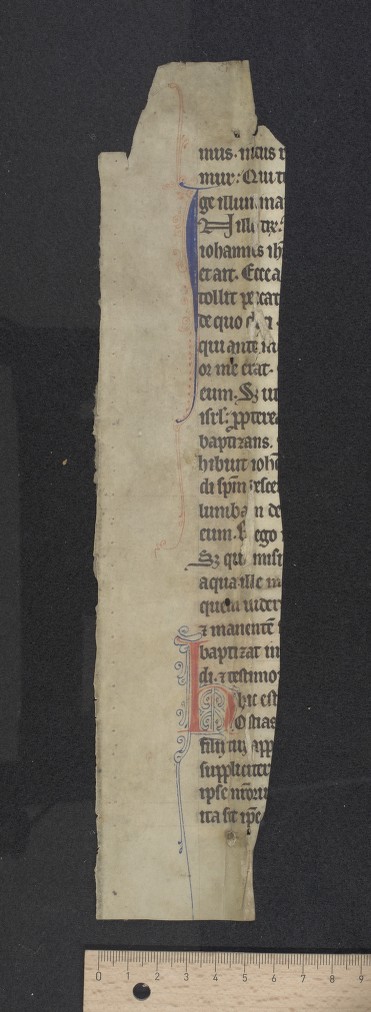 mus. meus
mur: Qui
ge illumina
In illo tpr.
iohannes ih
et ait. Ecce a
tollit peccat
de quo dixi
qui ante
or me erat.
eum. Sꝫ ut
isrl: ꝓpterea
baptizans.
hibuit ioh
di spm desce
lumbam de
eum. Et ego
Sꝫ qui misit
aqua ille m
quem vider
⁊ manentē
baptizat in
di. ⁊ testimo
hic est
Hostias
filii tui app
suppliciter
ipse nror
ita sit ipe
0 1 2 3 4 5 6 7 8 9